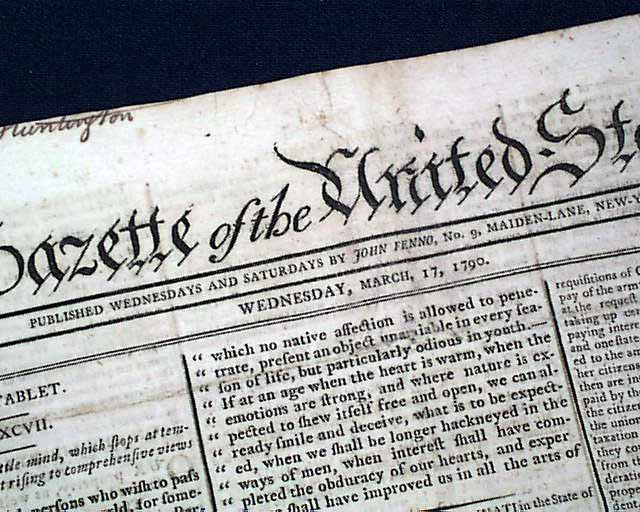 Huntington
Gazette of the United Sta
PUBLISHED WEDNESDAYS AND SATURDAYS BY JOHN FENNO, No. 9, MAIDEN-LANE, NEW-Y
WEDNESDAY, MARCH, 17, 1790.
TABLET.
XCVII.
ttle mind, which ſtops at tem-
t riſing to comprehenſive views
perſons who wiſh to paſs
world, for ſome-
“ which no native affection is allowed to pene-
“ trate, preſent an object unamiable in every ſea-
“ ſon of life, but particularly odious in youth.—
“ If at an age when the heart is warm, when the
“ emotions are ſtrong, and where nature is ex-
“ pected to ſhew itſelf free and open, we can al-
“ ready ſmile and deceive, what is to be expect-
“ ed, when we ſhall be longer hackneyed in the
“ ways of men, when intereſt ſhall have com
“ pleted the obduracy of our hearts, and exper
ſhall have improved us in all the arts of
NATI in the State of
requiſitions of C
pay of the arm
at the requeſ
taking up
paying intereſ
and oneſtate
ed to the
her citizens
then are in
paid by th
the citizen
the union
taxation
they co
from t
derati
prope
dent